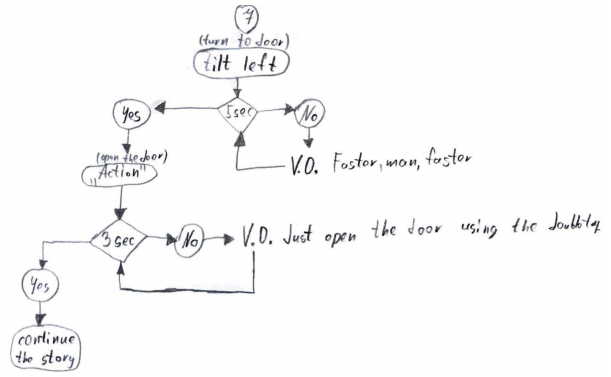 7
(turn to door)
tilt left
5sec
Yes
No
V.O. Faster, man, faster
(open the door)
„Action"
3 sec
No
V.O. Just open the door using the doubletap
Yes
continue
the story